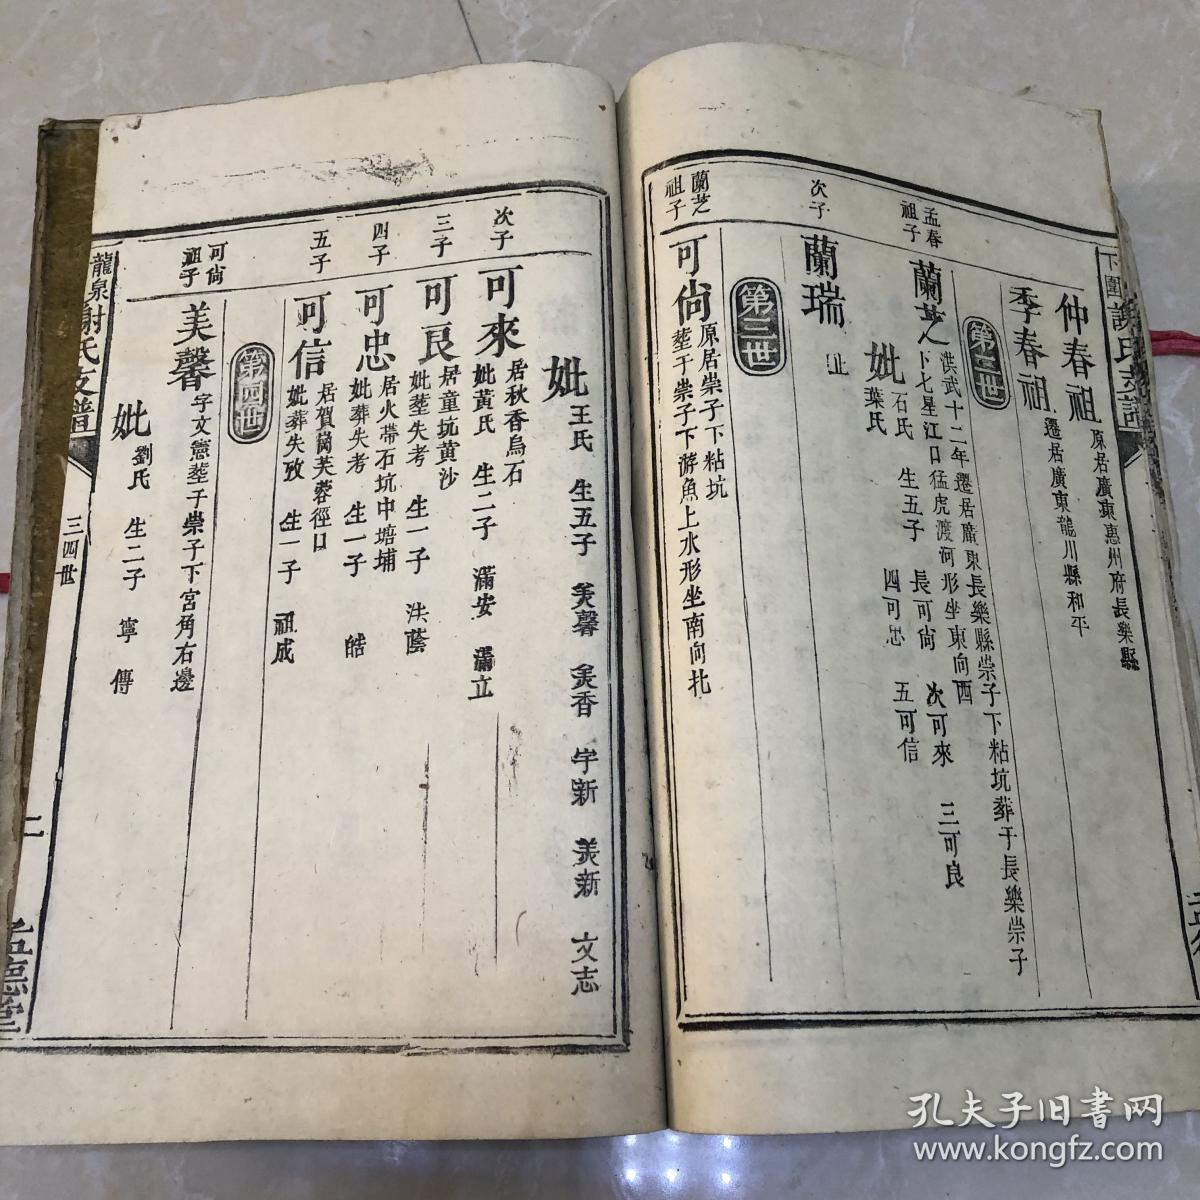 仲春祖 原居廣東惠州府長樂縣
季春祖 遷居廣東龍川縣和平
第二世
孟春祖子
蘭芝 洪武十二年遷居廣東長樂縣崇子下粘坑葬于長樂崇子
卜七星江口猛虎渡河形坐東向西
妣 石氏 生五子 長可尙 次可來 三可良
葉氏 四可忠 五可信
次子
蘭瑞 止
第三世
蘭芝祖子
可尙 原居崇子下粘坑
塟于崇子下游魚上水形坐南向北
妣 王氏 生五子 美馨 美香 宇新 美新 文志
次子
可來 居秋香烏石
妣黃氏 生二子 滿安 滿立
三子
可良 居童坑黄沙
妣塟失考 生一子 洪蔭
四子
可忠 居火蒂石坑中塘埔
妣葬失考 生一子 皓
五子
可信 居賀崗芙蓉徑口
妣葬失攷 生一子 祖成
第四世
可尙祖子
美馨 字文憲塟于崇子下宮角右邊
妣 劉氏 生二子 寧 傳
龍泉謝氏支譜
三四世
二
孔夫子旧書网
www.kongfz.com